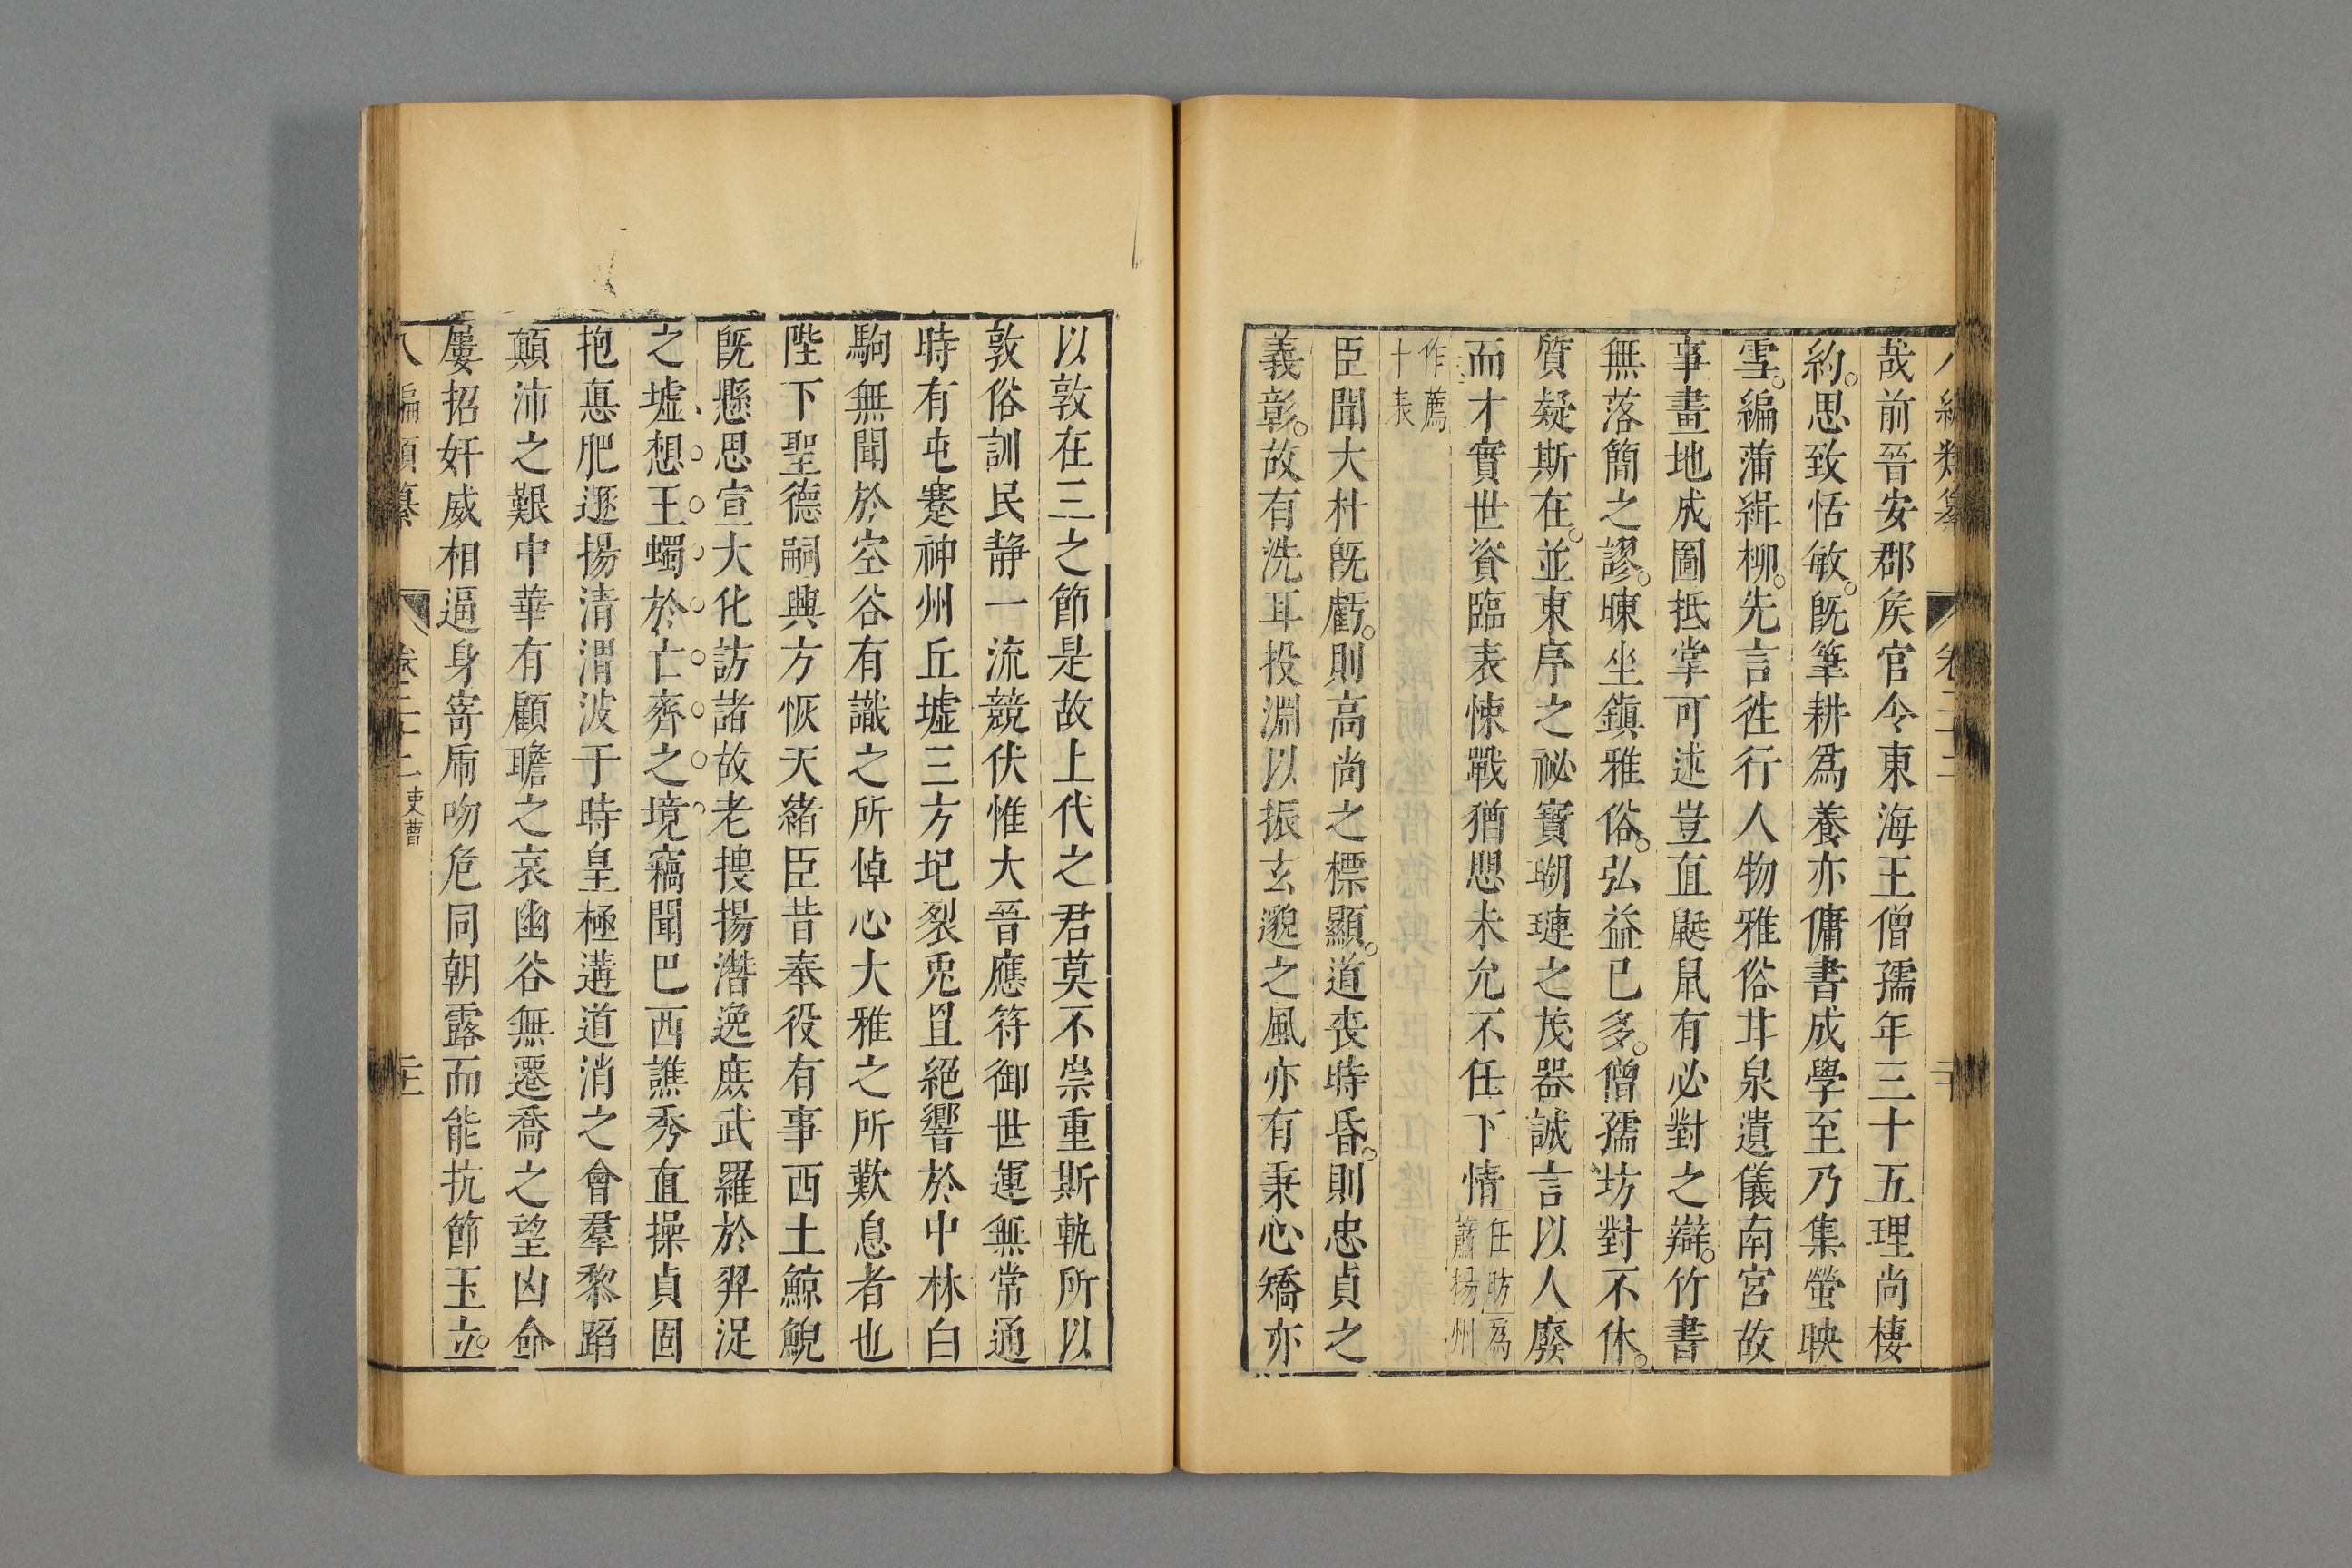 哉前晉安郡矦官令東海王僧孺年三十五理尚棲
約。思致恬敏。旣筆耕爲養亦傭書成學至乃集螢映
雪。編蒲緝柳。先言徃行人物雅俗甘泉遺儀南宮故
事畫地成圖抵掌可述豈直鼮鼠有必對之辯。竹書
無落簡之謬。暕坐鎮雅俗。弘益已多。僧孺坊對不休。
質疑斯在。並東序之祕寶瑚璉之茂器誠言以人廢
而才實世資臨表悚戰猶懼未允不任下情任昉爲蕭揚州
作薦士表
臣聞大朴旣虧。則高尚之標顯。道喪時昏。則忠貞之
義彰。故有洗耳投淵以振玄邈之風亦有秉心矯亦
以敦在三之節是故上代之君莫不崇重斯軌所以
敦俗訓民靜一流競伏惟大晉應符御世運無常通
時有屯蹇神州丘墟三方圮裂兎罝絕響於中林白
駒無聞於空谷有識之所悼心大雅之所歎息者也
陛下聖德嗣興方恢天緒臣昔奉役有事西土鯨鯢
旣懸思宣大化訪諸故老搜揚潛逸庶武羅於羿浞
之墟想王蠋於亡齊之境竊聞巴西譙秀直操貞固
抱悳肥遯揚清渭波于時皇極遘道消之會羣黎蹈
顛沛之艱中華有顧瞻之哀幽谷無遷喬之望凶命
屢招奸威相逼身寄虎吻危同朝露而能抗節玉立。
八編類纂 卷二十二 吏曹